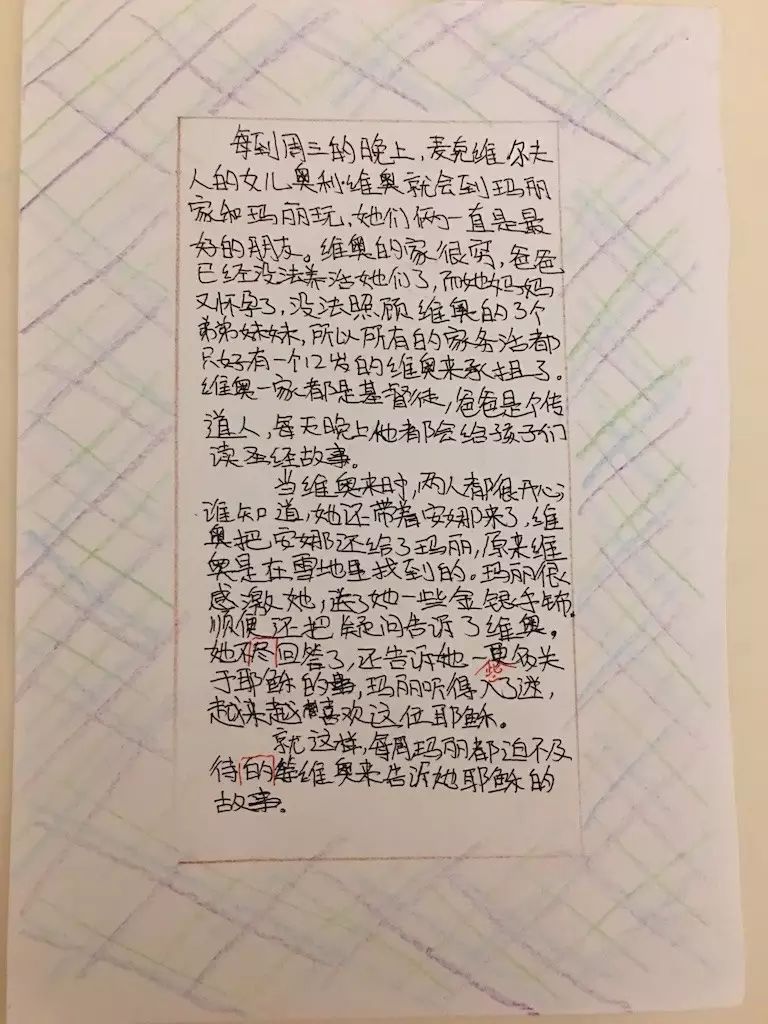 每到周三的晚上,麦克维尔夫
人的女儿奥利维奥就会到玛丽
家和玛丽玩,她们俩一直是最
好的朋友。维奥的家很穷,爸爸
已经没法养活她们了,而她妈妈
又怀孕了,没法照顾维奥的3个
弟弟妹妹,所以所有的家务活都
只好有一个12岁的维奥来承担了。
维奥一家都是基督徒,爸爸是个传
道人,每天晚上他都会给孩子们
读圣经故事。
当维奥来时,两人都很开心;
谁知道,她还带着安娜来了,维
奥把安娜还给了玛丽,原来维
奥是在雪地里找到的。玛丽很
感激她,送了她一些金银手饰。
顺便还把疑问告诉了维奥。
她不尽回答了,还告诉她一些关
于耶稣的事,玛丽听得入了迷,
越来越喜欢这位耶稣。
就这样,每周玛丽都迫不及
待的等维奥来告诉她耶稣的
故事。